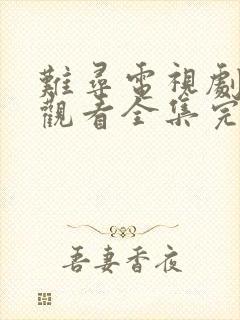 難尋電視劇
觀看全集完
吾妻香夜